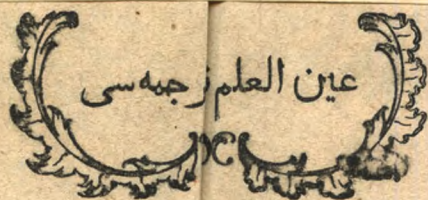 عين العلم ترجمه سى